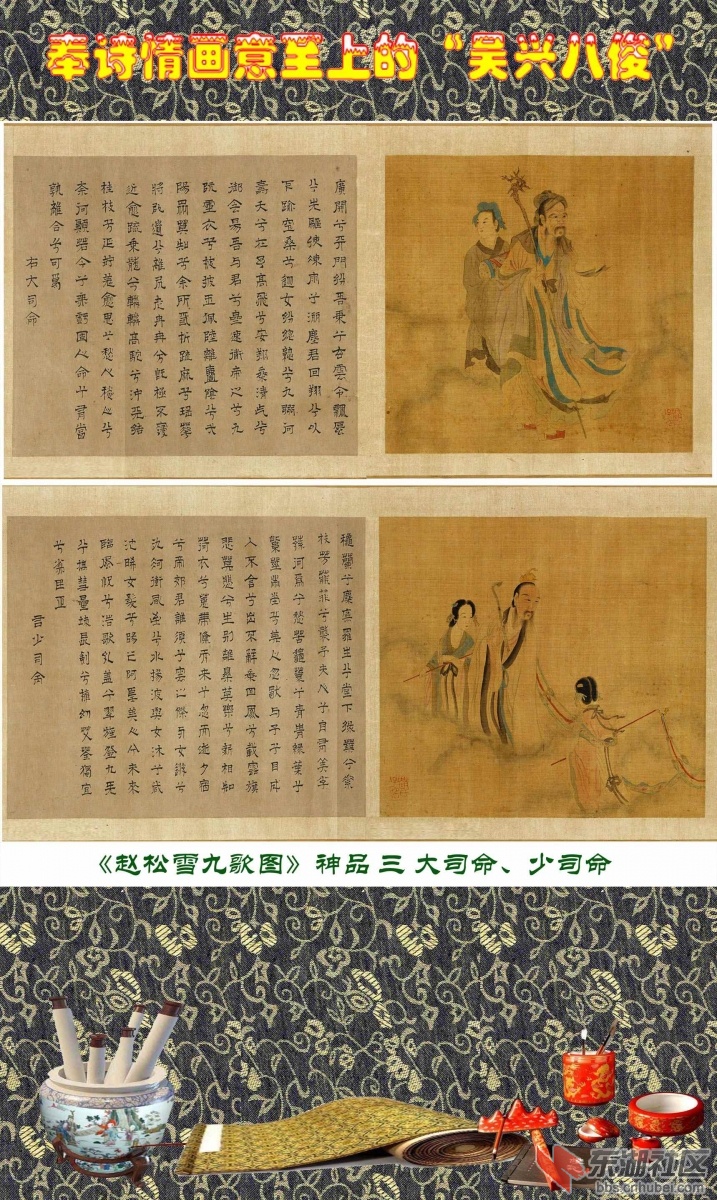 奉诗情画意至上的“吴兴八俊”
廣開兮天門紛吾乘兮玄雲令飄風
兮先驅使涷雨兮灑塵君回翔兮以
下踰空桑兮從女紛總總兮九州何
壽夭兮在予高飛兮安翔乘清氣兮
御陰陽吾與君兮齊速導帝之兮九
坑靈衣兮被被玉佩陸離壹陰兮壹
陽衆莫知兮余所爲折疏麻兮瑤華
將以遺兮離居老冉冉兮既極不寖
近愈疏乘龍兮轔轔高馳兮沖天結
桂枝兮延竚羌愈思兮愁人愁人兮
柰何願若今兮無虧固人命兮有當
孰離合兮可爲
右大司命
穐蘭兮麋蕪羅生兮堂下綠葉兮素
枝芳菲菲兮襲予夫人兮自有美子
蓀何爲兮愁苦秋蘭兮青青綠葉兮
紫莖滿堂兮美人忽獨與予兮目成
入不言兮出不辭乘回風兮載雲旗
悲莫悲兮生別離樂莫樂兮新相知
荷衣兮蕙帶儵而來兮忽而逝夕宿
兮帝郊君誰須兮雲之際與女遊兮
九河衝風至兮水揚波與女沐兮咸
池晞女髮兮陽之阿望美人兮未來
臨風怳兮浩歌孔蓋兮翠旍登九天
兮撫彗星竦長劍兮擁幼艾蓀獨宜
兮爲民正
右少司命
《赵松雪九歌图》神品 三 大司命、少司命
东湖社区
bbs.cnhubei.com